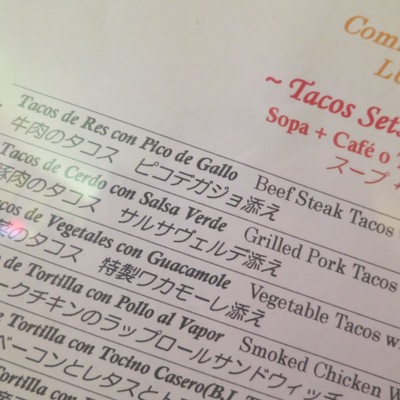 Com
L
~ Tacos Sets
Sopa + Café o
スープ +
Tacos de Res con Pico de Gallo Beef Steak Tacos
牛肉のタコス ピコデガジョ添え
Tacos de Cerdo con Salsa Verde Grilled Pork Tacos
豚肉のタコス サルサヴェルデ添え
cos de Vegetales con Guacamole Vegetable Tacos w
菜のタコス 特製ワカモーレ添え
de Tortilla con Pollo al Vapor Smoked Chicken W
ークチキンのラップロールサンドウィッチ
e Tortilla con Tocino Casero(B.L.T
ベーコンとレタスとト
Tortilla con